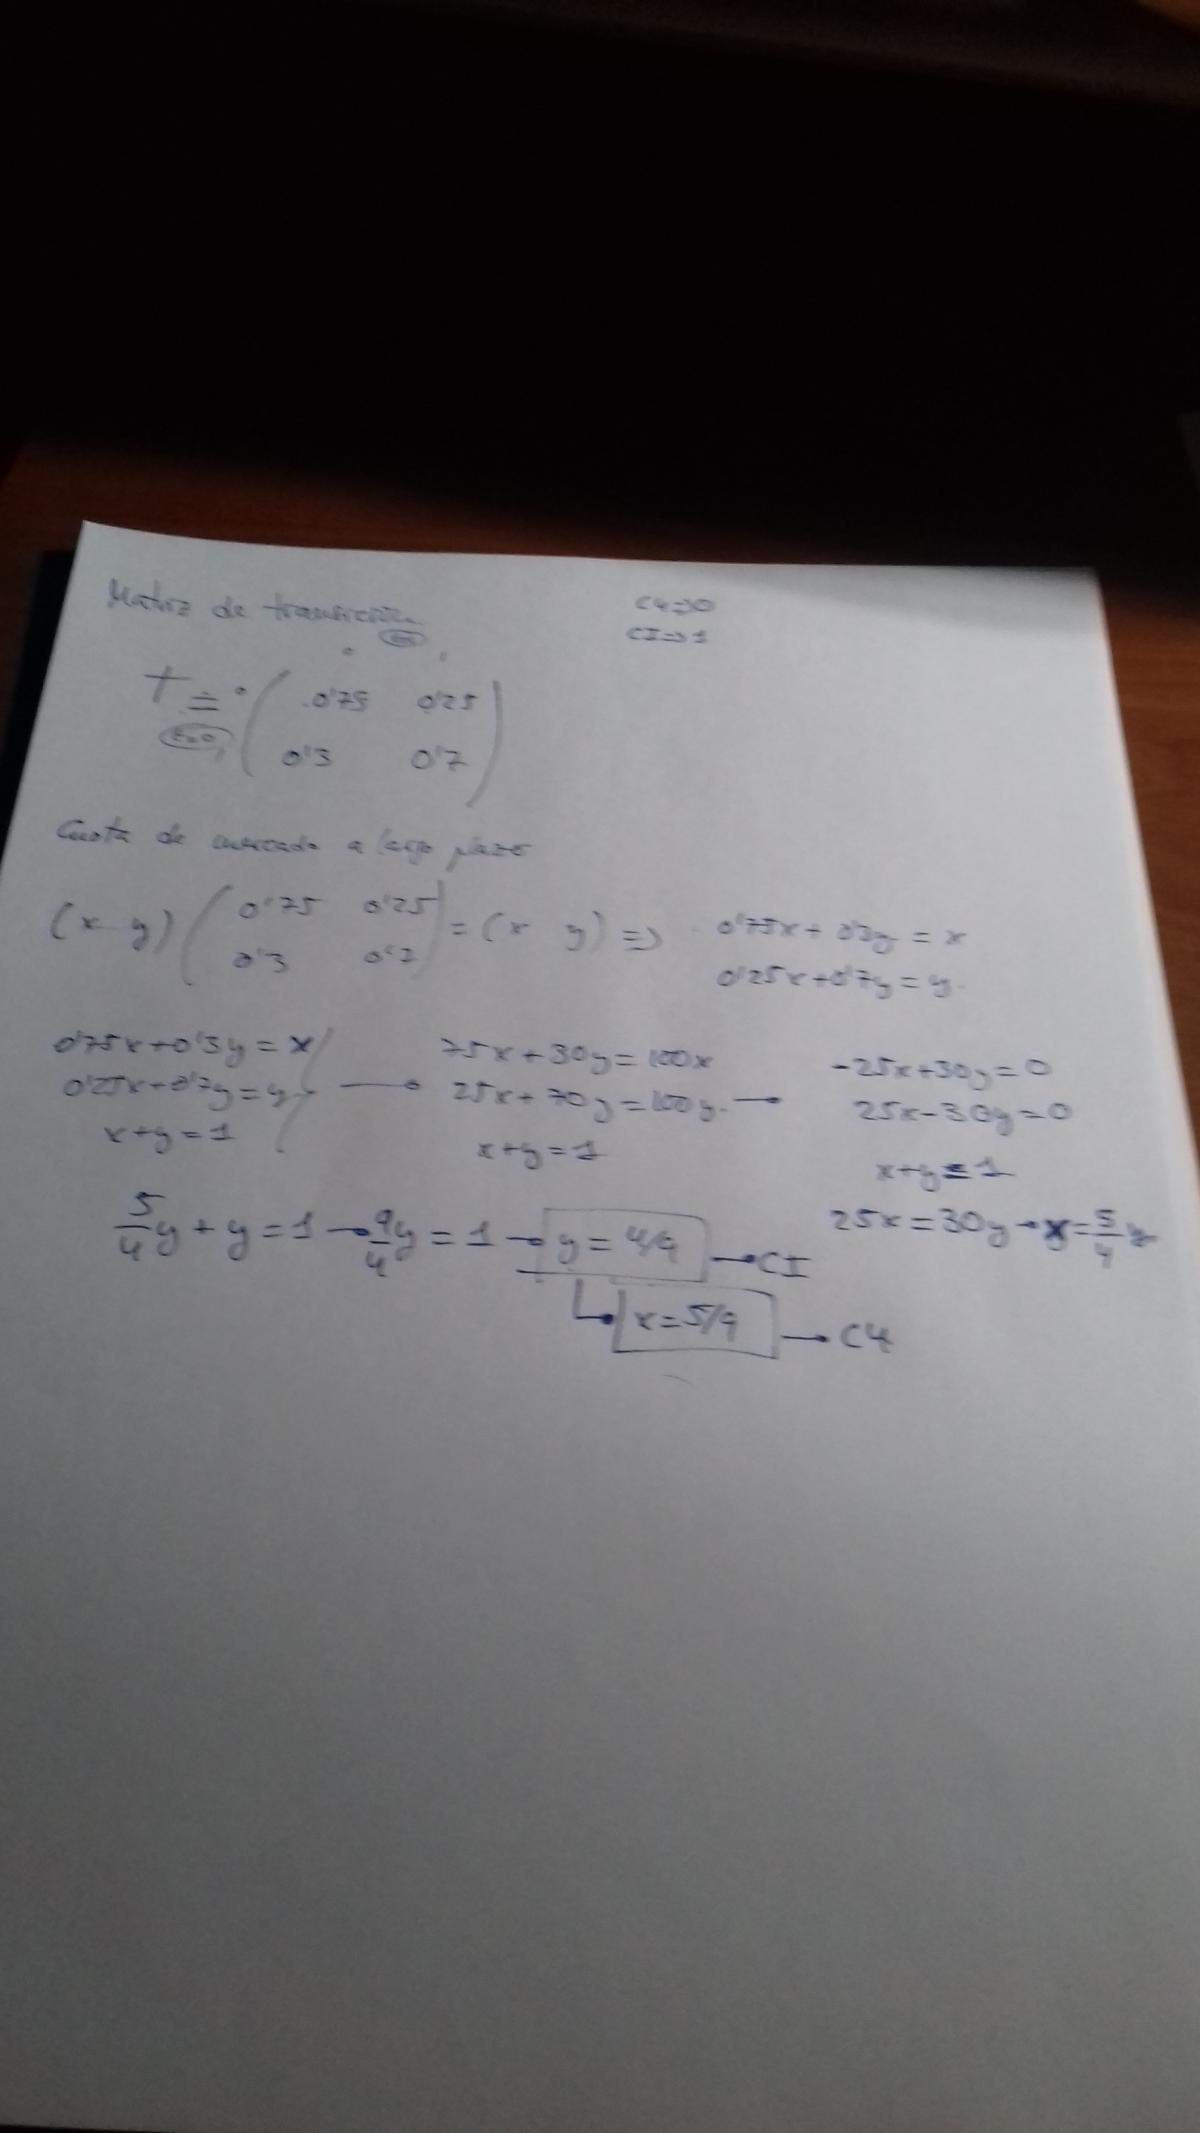 Matriz de transición
C4=>0
CI=>1
0 1
T = 0 ( 0'75 0'25
0'3 0'7 )
Cuota de mercado a largo plazo
(x y) ( 0'75 0'25
0'3 0'7 ) = (x y) => 0'75x + 0'3y = x
0'25x + 0'7y = y
0'75x + 0'3y = x
0'25x + 0'7y = y
x + y = 1
75x + 30y = 100x
25x + 70y = 100y
x + y = 1
-25x + 30y = 0
25x - 30y = 0
x + y = 1
25x = 30y → x = 5/4 y
5/4 y + y = 1 → 9/4 y = 1 → y = 4/9 → CI
x = 5/9 → C4